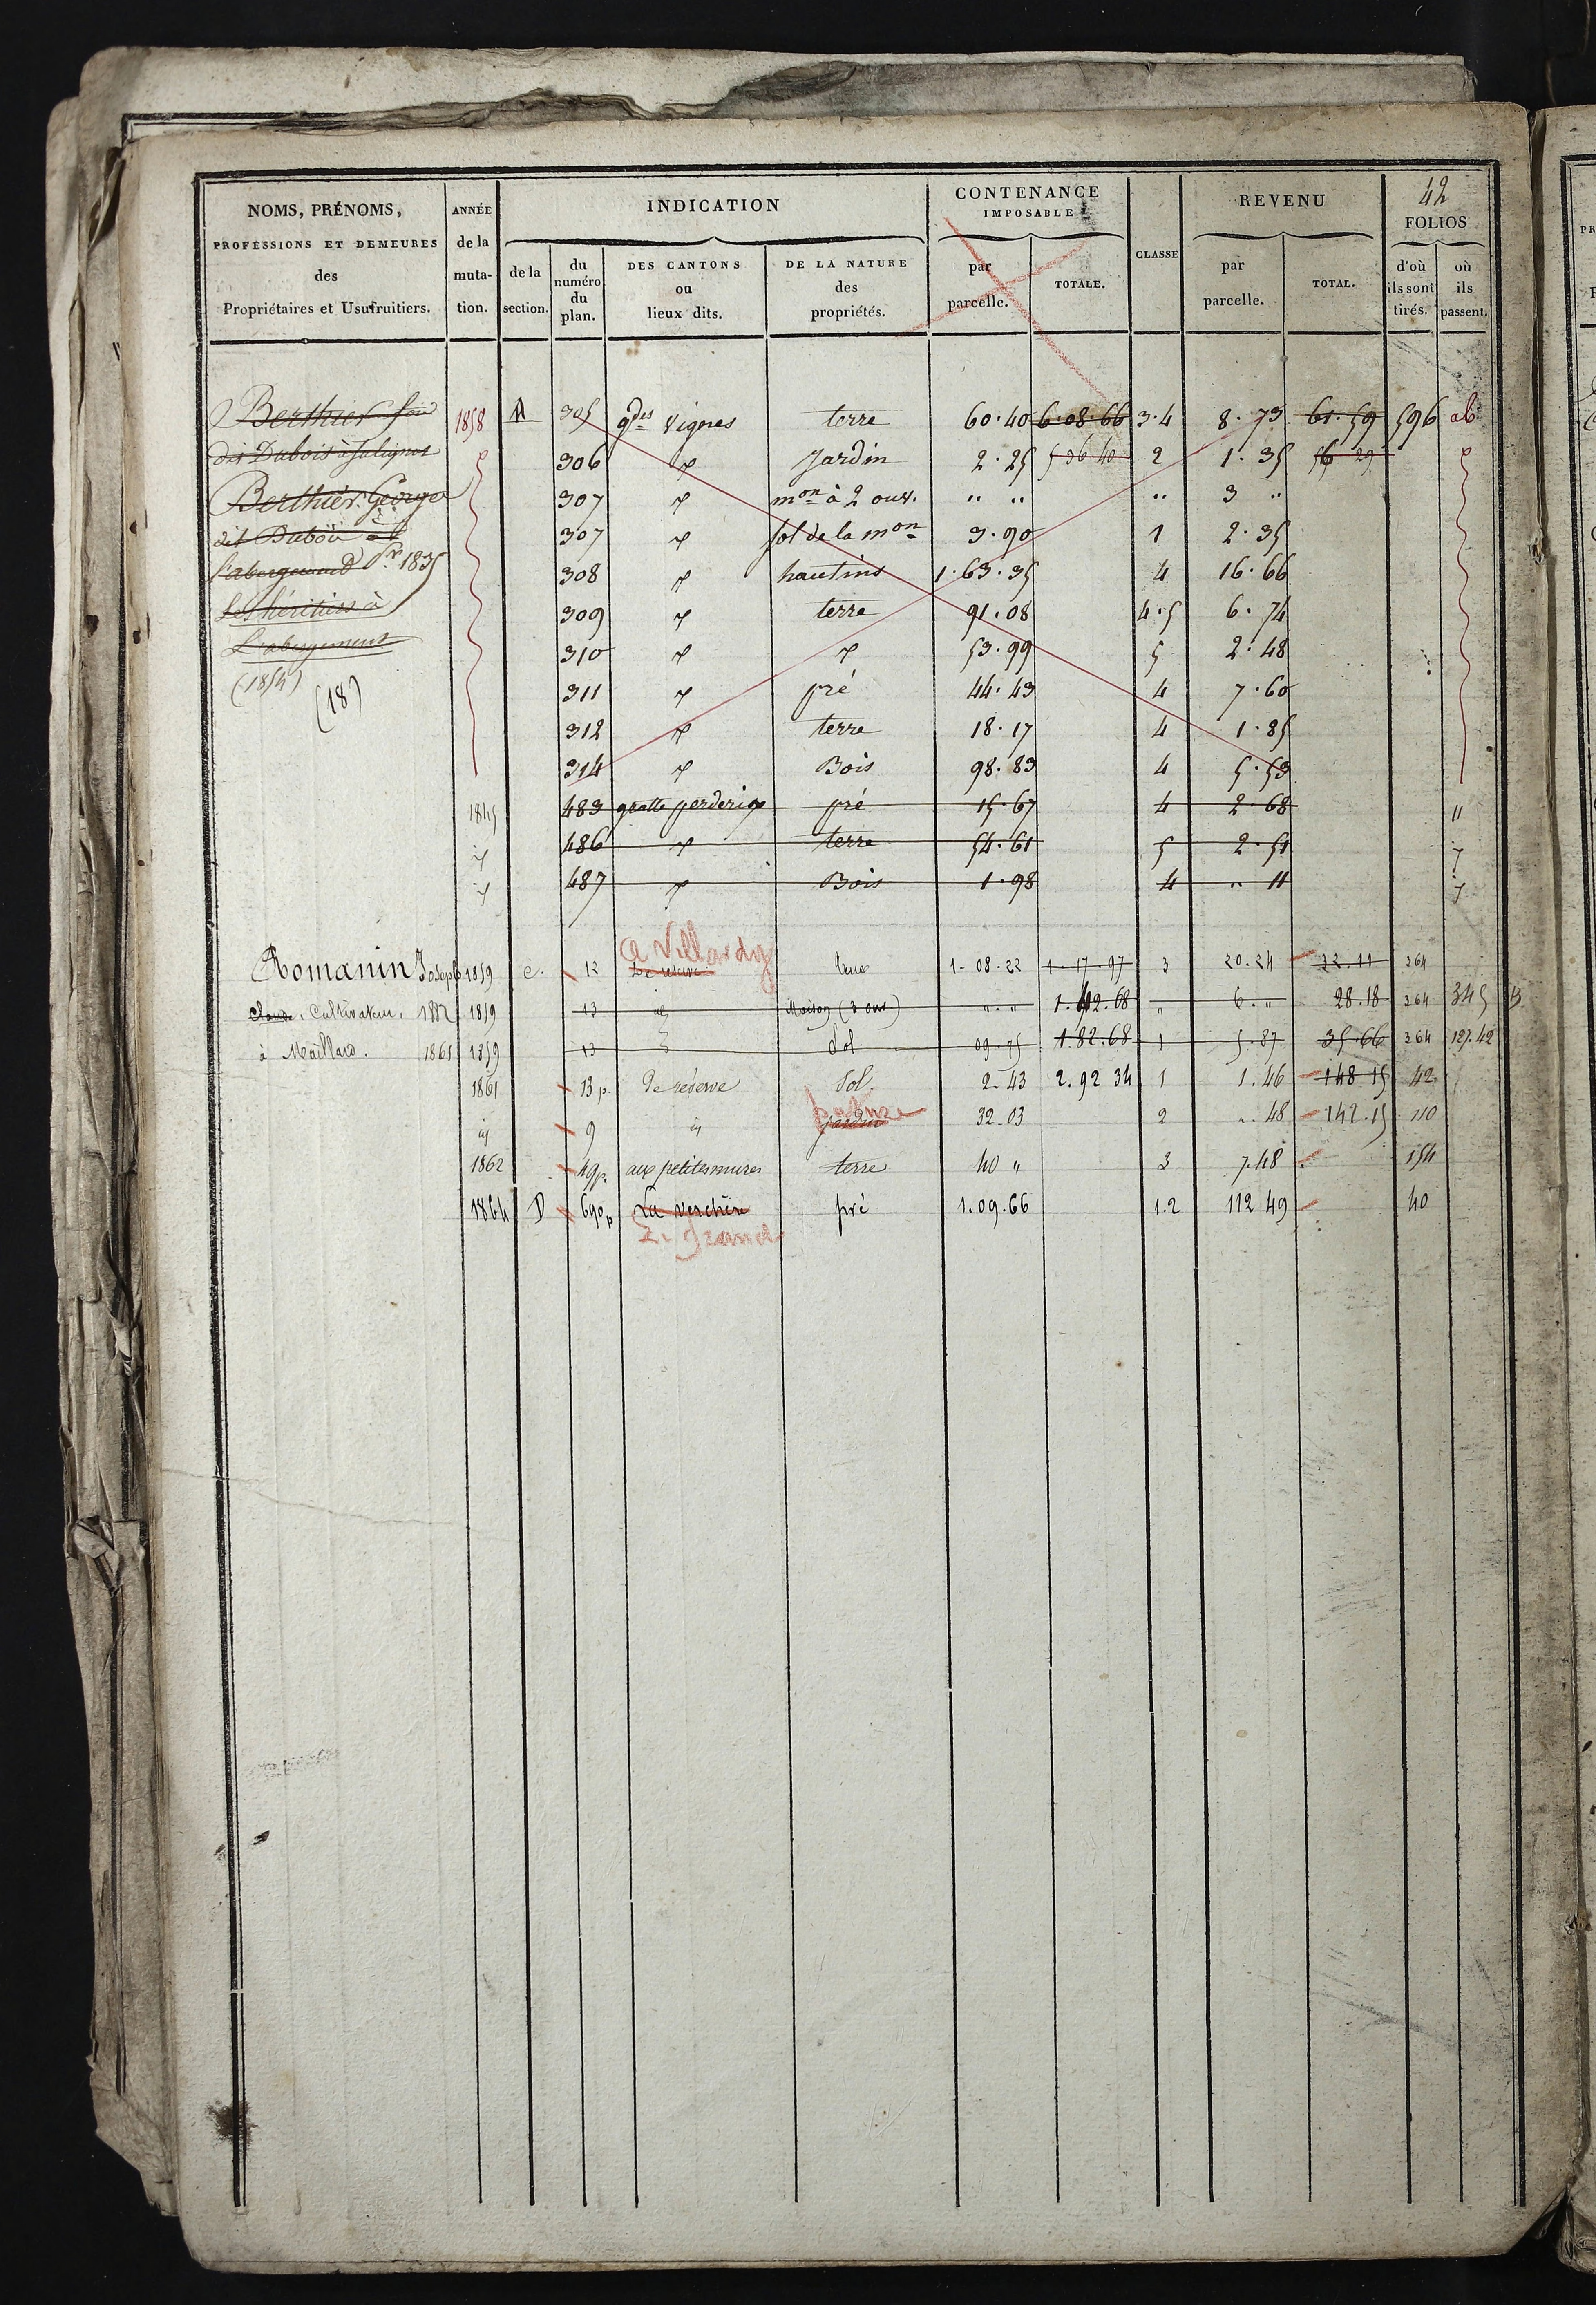 42
NOMS, PRÉNOMS, PROFESSIONS ET DEMEURES des Propriétaires et Usufruitiers.
ANNÉE de la muta- tion.
INDICATION
de la section.
du numéro du plan.
DES CANTONS ou lieux dits.
DE LA NATURE des propriétés.
CONTENANCE IMPOSABLE
par parcelle.
TOTALE.
CLASSE
REVENU
par parcelle.
TOTAL.
FOLIOS
d'où ils sont tirés.
où ils passent.
Berthier 1858 A 305 gdes Vignes terre 60.40 6.08.66 3.4 8.73 61.59 596 ab
dit Dubois à 306 Jardin 2.25 5 36 40 2 1.35 56 29
Berthier George 307 mon à 2 ouv. " " " 3 "
dit Dubois à 307 sol de la mon 3.90 1 2.35
l'abergement 1835 308 hautins 1.63.35 4 16.66
Les héritiers à 309 terre 91.08 4.5 6.74
L'abergement 310 53.99 5 2.48
(1854) (18) 311 pré 44.43 4 7.60
312 terre 18.17 4 1.85
314 Bois 98.83 4 5.53
1845 483 gratte perderix pré 15.67 4 2.68 "
486 terre 54.61 5 2.51
487 Bois 1.98 4 " 11
a Villardy
Romanin Joseph 1859 C. 12 De réserve terre 1-08-22 1-17-97 3 20.24 22.11 364
Claude, Cultivateur, 1882 1859 13 id Maison (3 ouv) " . " 1.42.68 " 6 . " 28.18 364 345
à Maillard. 1861 1859 13 Sol 09.75 1.82.68 1 5.87 35.66 364 127.42
1861 13 p. De réserve Sol. 2-43 2.92 34 1 1.46 148 15 42
id 9 id jardin 32-03 2 ". 48 142.15 110
1862 49p. aux petites mures terre 40 " 3 7.48 154
1864 D 690p La verchère pré 1.09.66 1.2 112 49 40